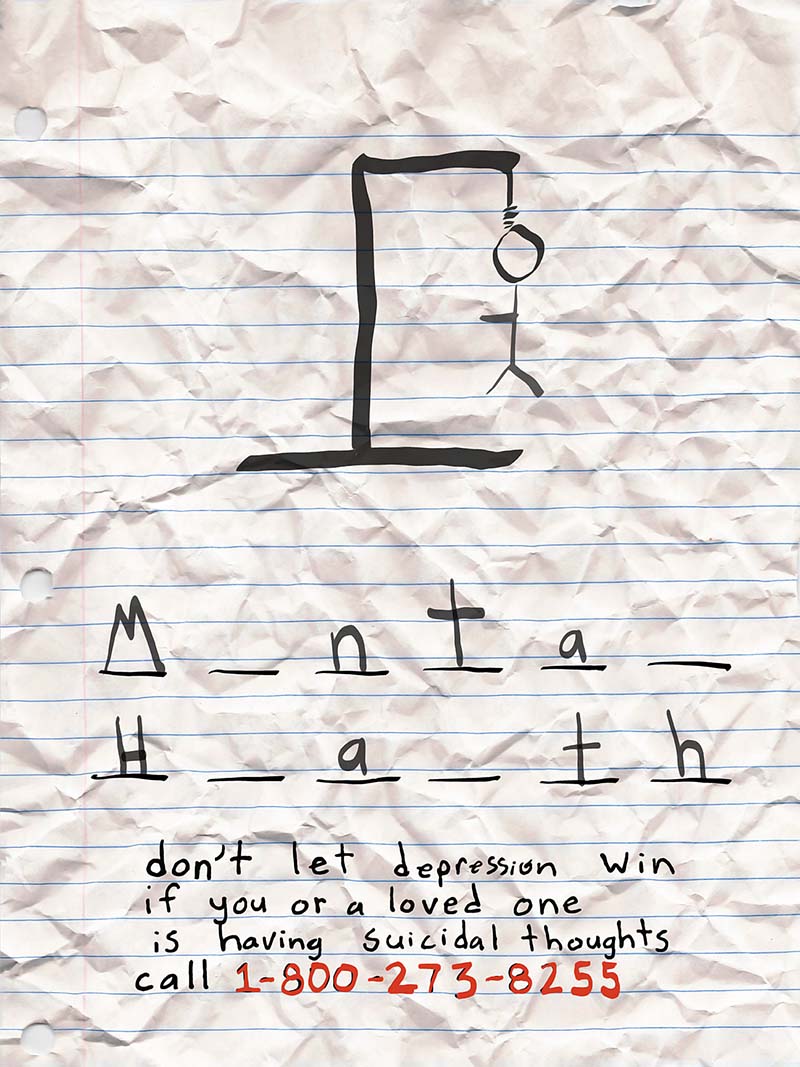 M _ n t a _
H _ a _ t h
don't let depression win
if you or a loved one
is having suicidal thoughts
call 1-800-273-8255